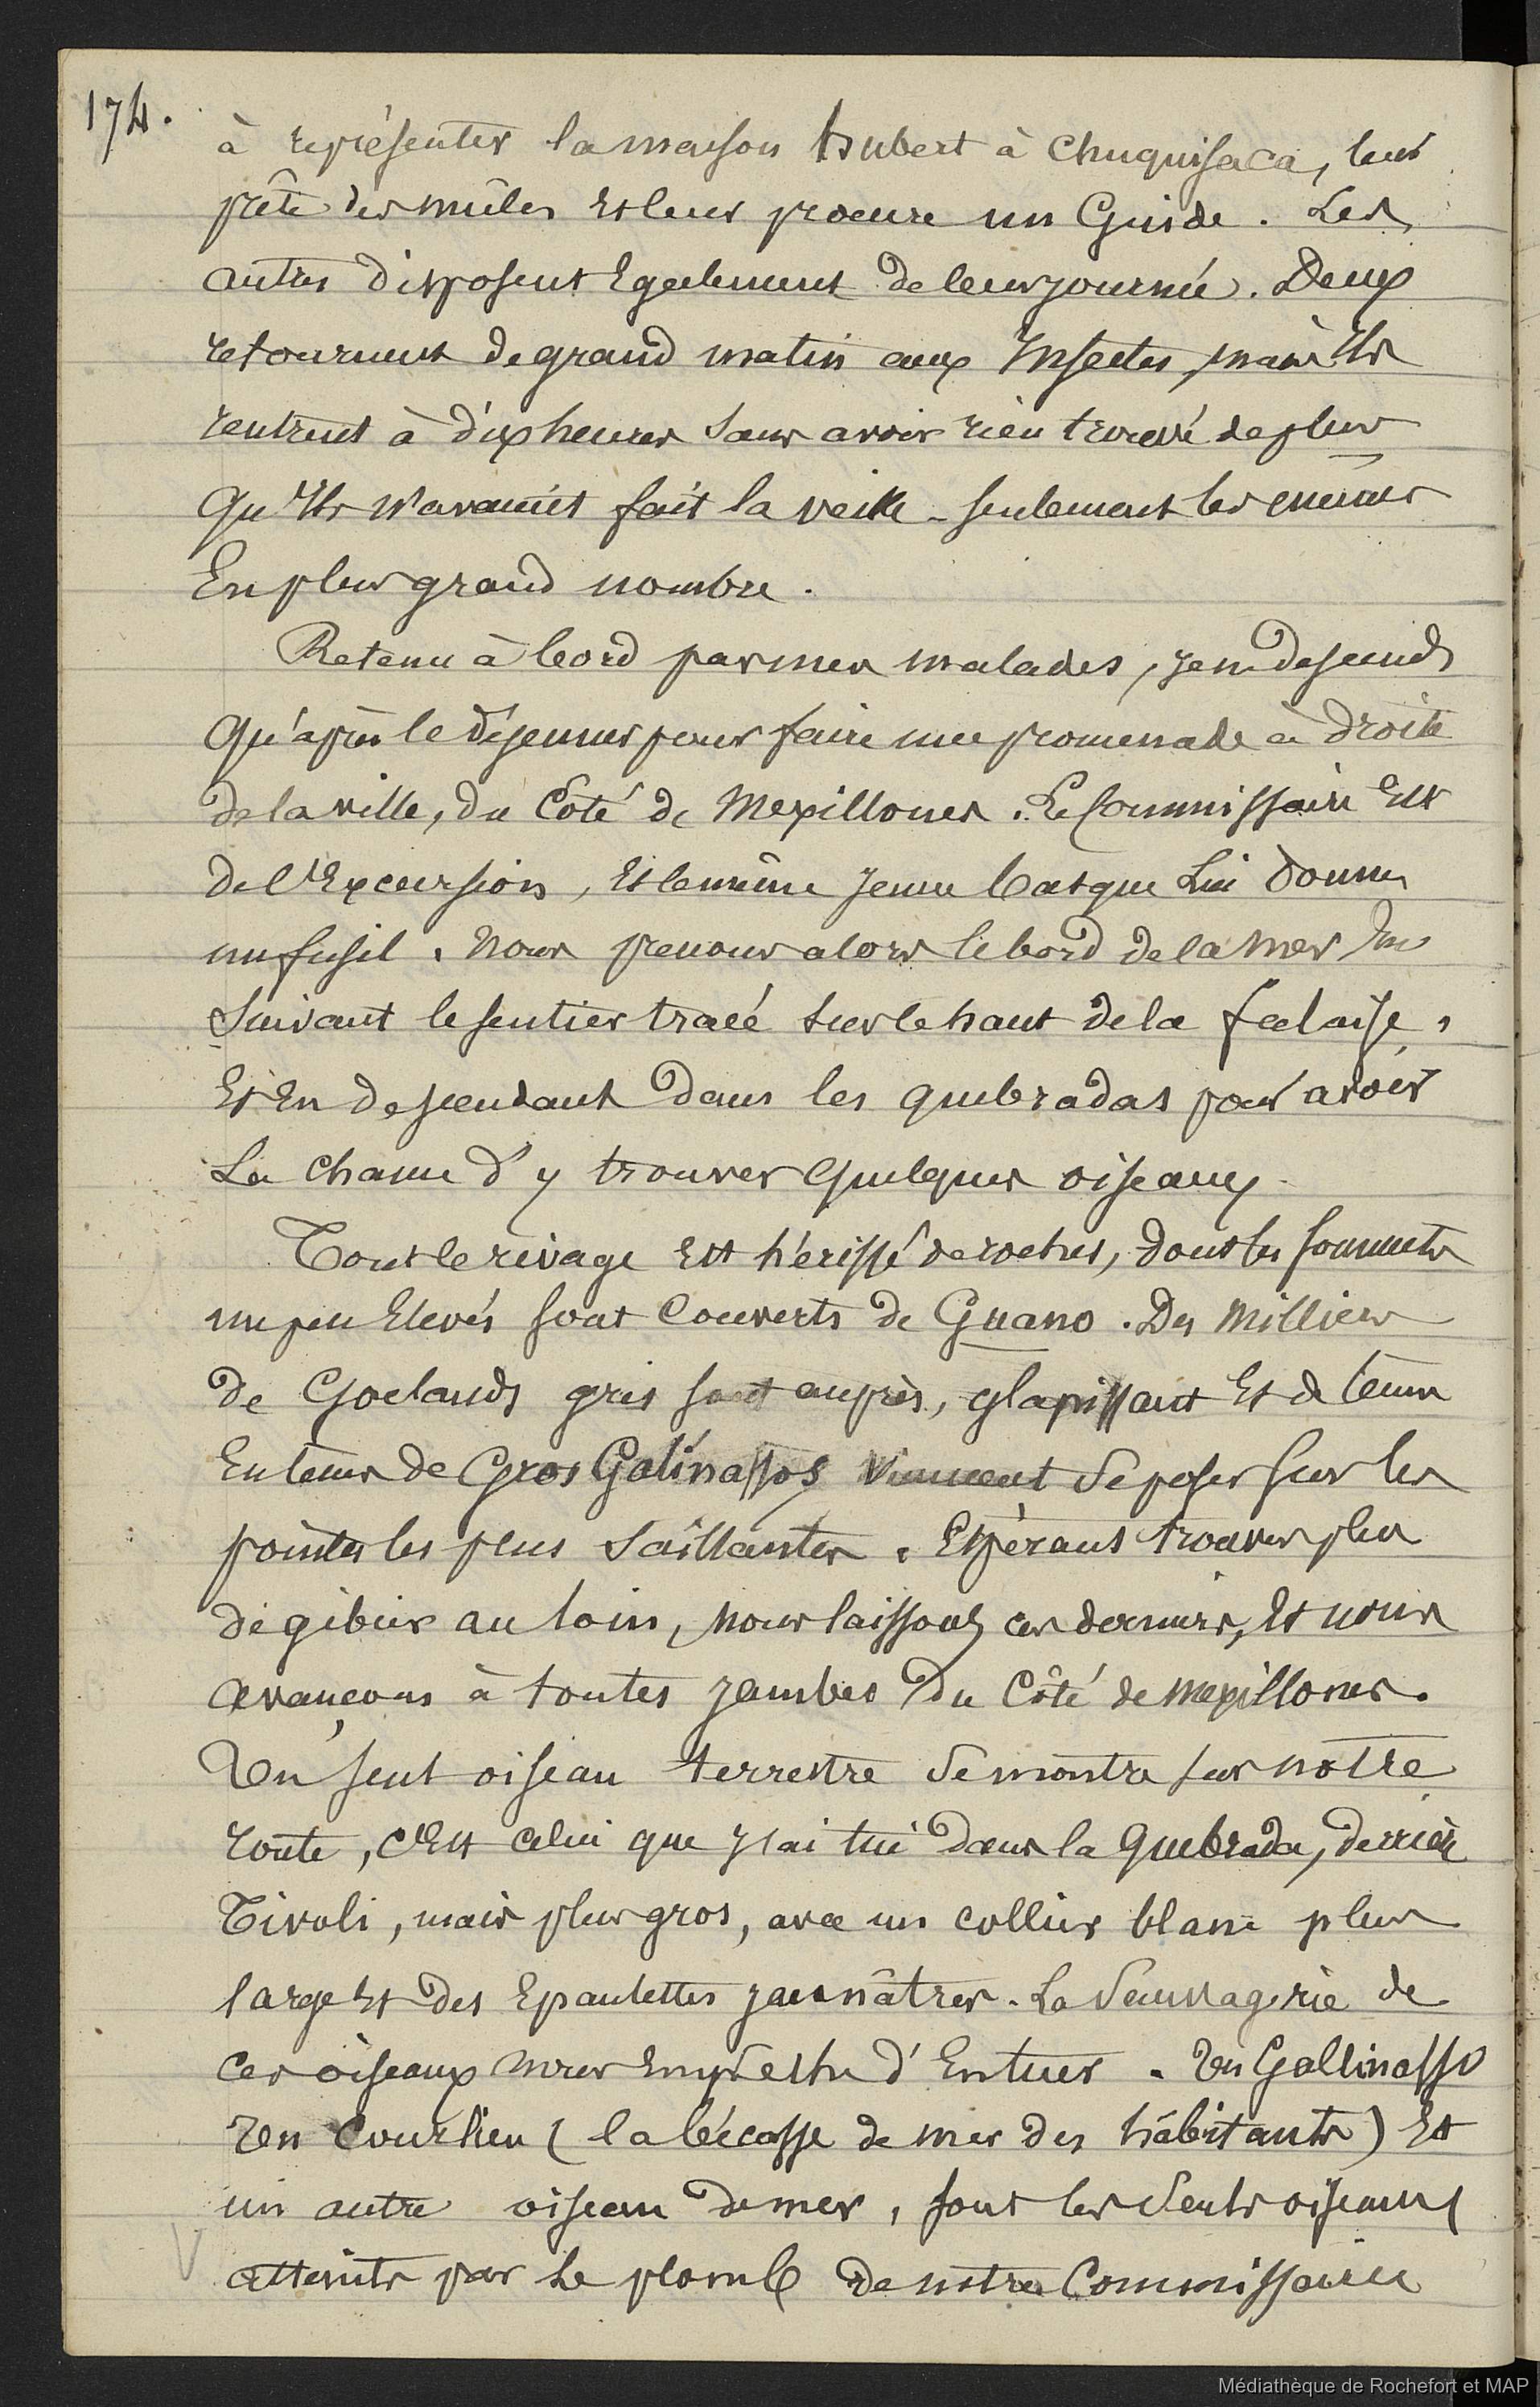 174.
à représenter la maison Hubert à Chuquisaca, leur
prête des mules Et leur procure un Guide. Les
autres disposent Egalement de leur journée. Deux
retournent de grand matin aux Insectes, mais Ils
rentrent à dix heures sans avoir rien trouvé de plus
qu'Ils n'avaient fait la veille - seulement les mêmes
En plus grand nombre.
Retenu à bord par mes malades, je ne descends
qu'après le déjeuner pour faire une promenade à droite
de la ville, du Côté de Mexillones. Le Commissaire Est
de l'Excursion, Et le même jeune basque Lui donne
un fusil. Nous prenons alors le bord de la mer En
suivant le sentier tracé sur le haut de la falaise,
Et En descendant dans les quebradas pour avoir
La chance d'y trouver quelques oiseaux.
Tout le rivage Est hérissé de roches, dont les sommets
un peu Elevés sont Couverts de Guano. Des Milliers
de Goelands gris sont auprès, glapissant Et de tems
En tems de Gros Galinassos viennent se poser sur les
pointes les plus saillantes. Espérant trouver plus
de gibier au loin, nous laissons ces derniers, Et nous
avançons à toutes jambes du Côté de Mexillones.
Un seul oiseau terrestre se montra sur notre
route, c'Est celui que j'ai tué dans la Quebrada, derrière
Tivoli, mais plus gros, avec un collier blanc plus
large Et des Epaulettes jaunâtres. La Sauvagerie de
Ces oiseaux nous Empêche d'En tuer. Un Gallinasso
Un Courlieu (la bécasse de mer des habitants) Et
un autre oiseau de mer, sont les seuls oiseaux
atteints par le plomb de notre Commissaire
Médiathèque de Rochefort et MAP